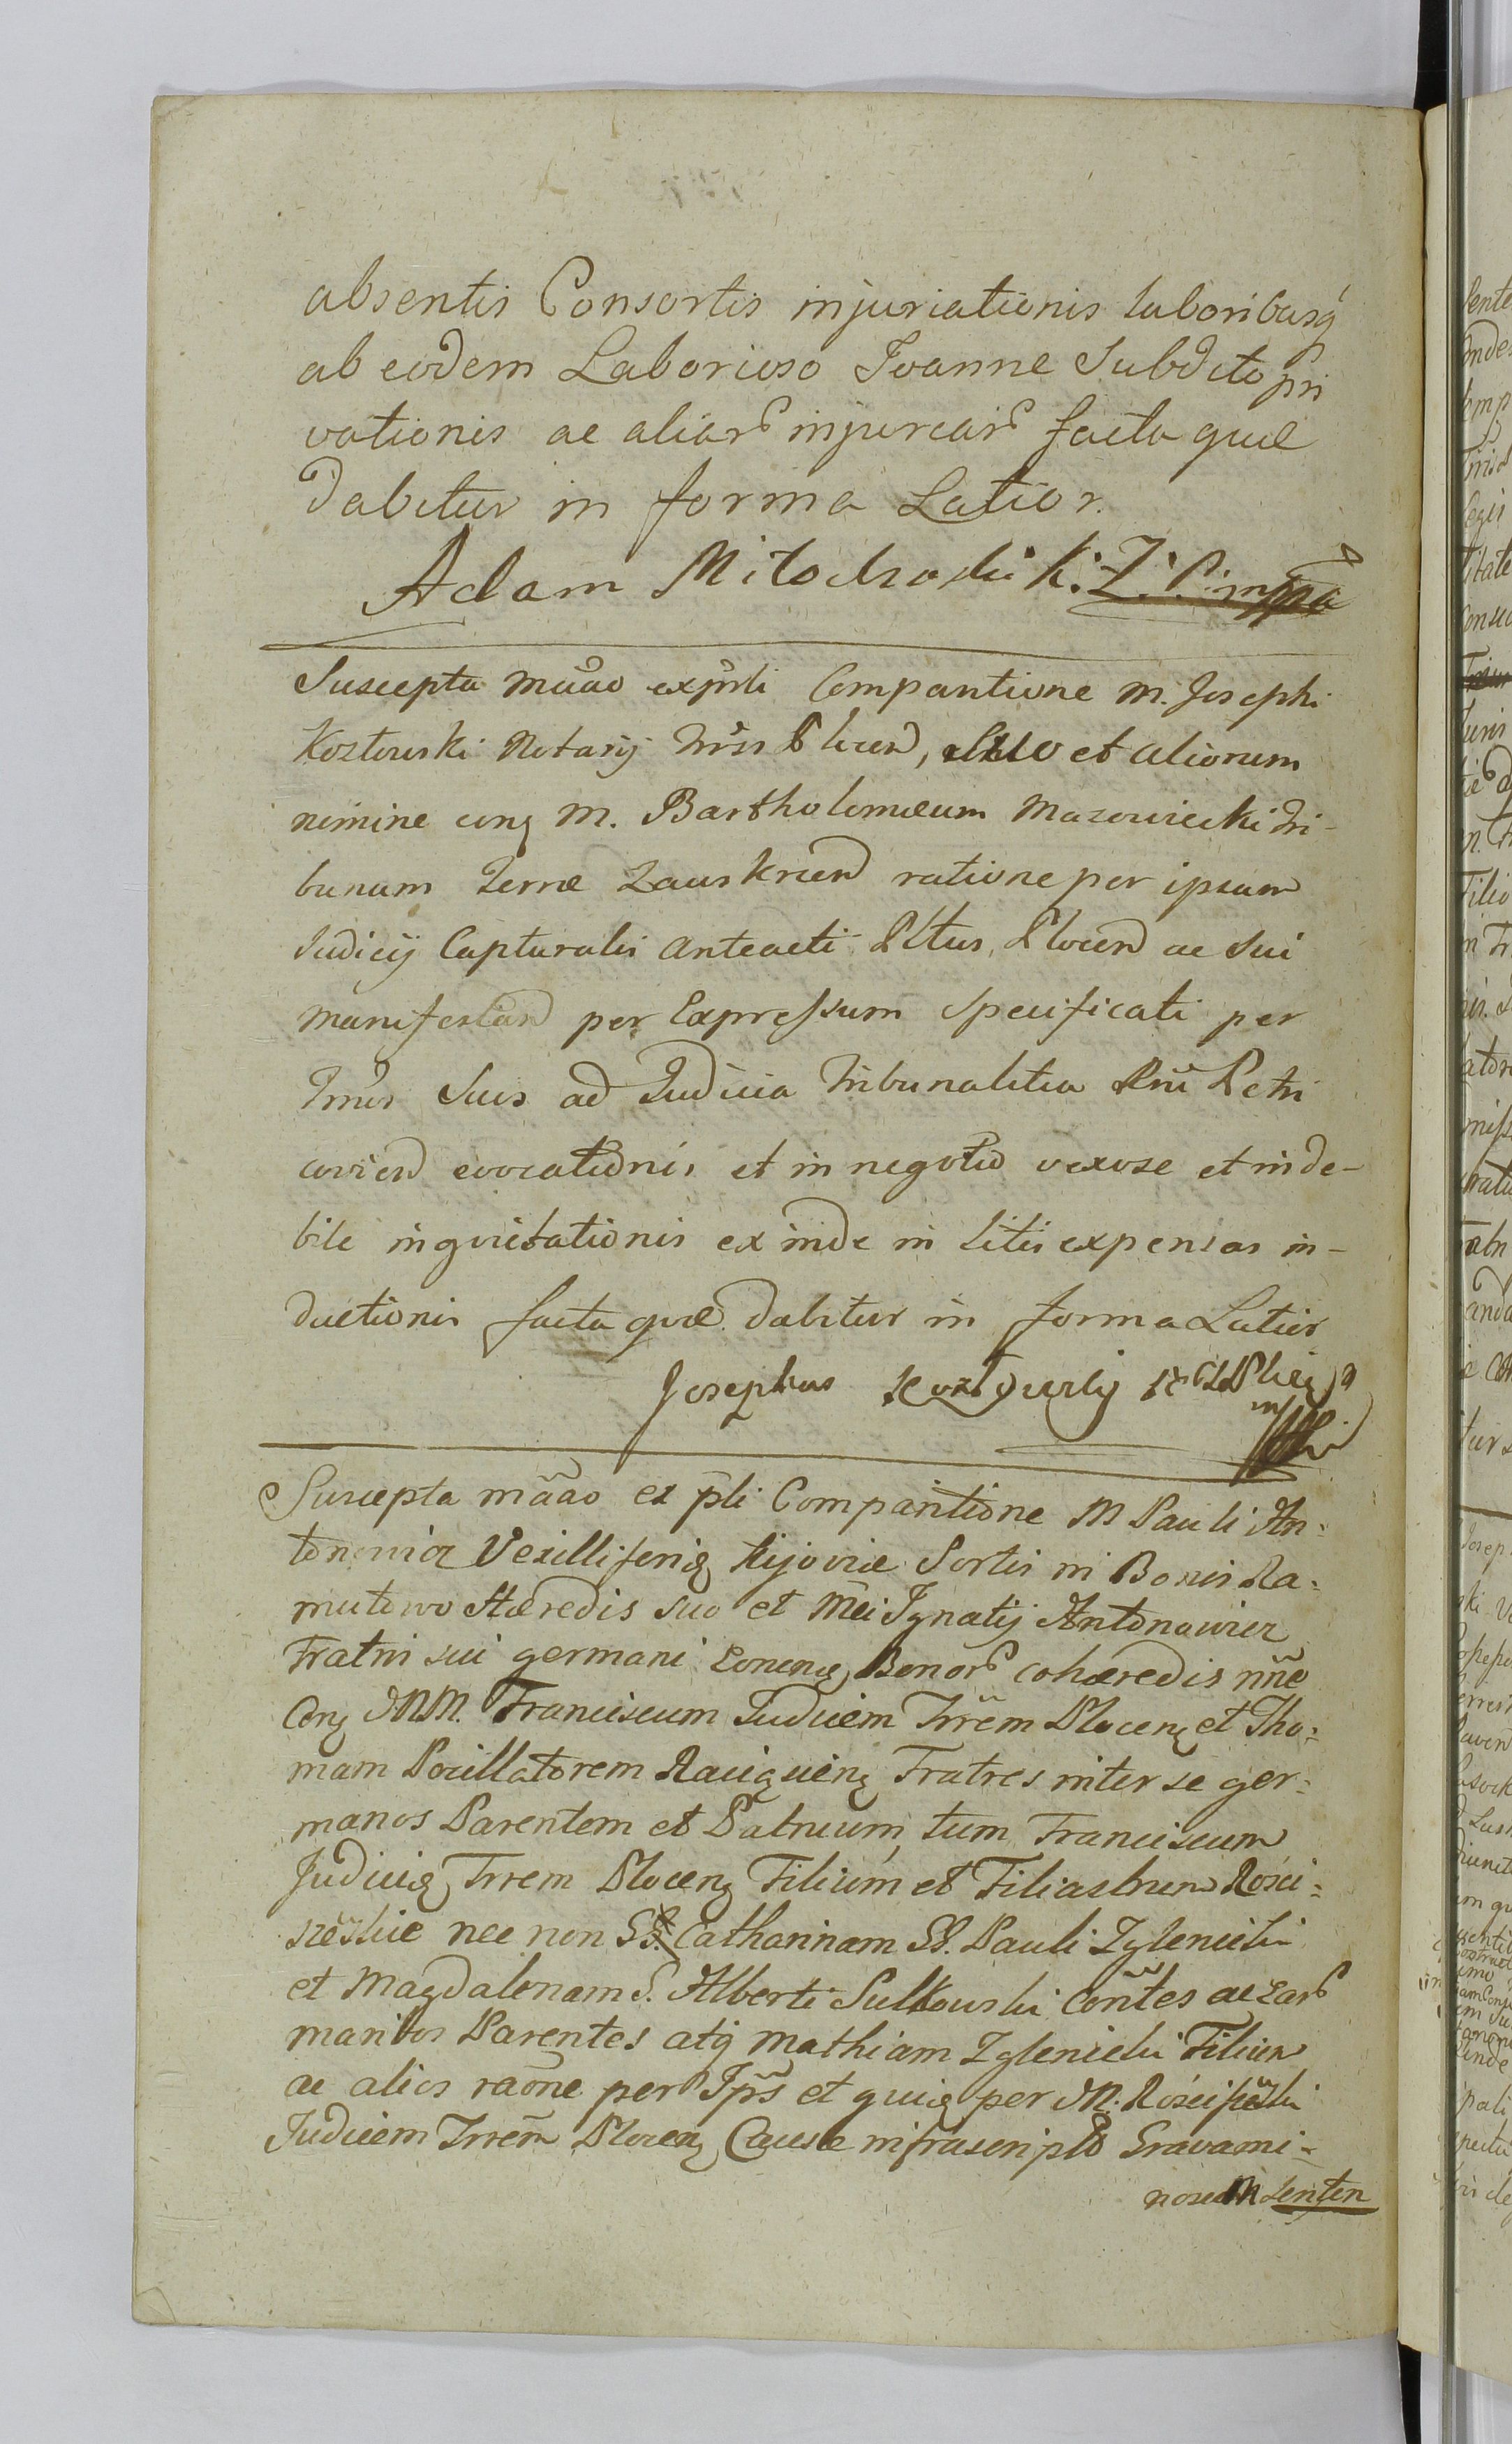 absentis Consortis injuriationis laboribusq̃
ab eodem Laborioso Joanne Subdito pri
vationis ac aliar injuriar facta quæ
dabitur in forma Latior.
Adam Miłodroski K. Z. P. mpp
Suscepta mãao expśli Comparitione M. Josephi
Kozłowski Notarij Trrss Plocen, suo et aliorum
nomine conq M. Bartholomæum Mazowiecki Tri-
bunum Terræ Zauskrcen ratione per ipsum
Judicij Capturalis anteacti Pltus, Plocen ac sui
manifestaõn per Expressum specificati per
Trmis suis ad Judicia Tribunalitia Rni Petri
covien evocationis et in negotio vexose et inde-
bite inquietationis ex inde in litis expensas in-
ductionis facta quæ dabitur in forma Latior
Josephus Kozłowski
Suscepta mãao ex pli Comparitione M Pauli An:
tonowicz Vexilliferiq Kijoviæ Sortis in Bonis Ra:
mutowo Hæredis suo et Mei Ignatij Antonowicz
Fratris sui germani Eorunq Bonor cohæredis nñe
Conq MM. Franciscum Judicem Trrem Plocenq et Tho:
mam Pocillatorem Raciquenq Fratres inter se ger:
manos Parentem et Patruum, tum Franciscum
Judiciq Trrem Plocenq Filium et Filiastrum Rości:
szewskie nec non SS. Catharinam SS. Pauli Zglenicki
et Magdalenam S. Alberti Sulkowski Coñtes ac Ear
maritos Parentes atq̃ Mathiam Zglenicki Filium
ac alios raõne per Ip̃s et quiq per M. Rościszewski
Judicem Trrem Plocenq Causæ infrascripto Gravami-
nose Senten